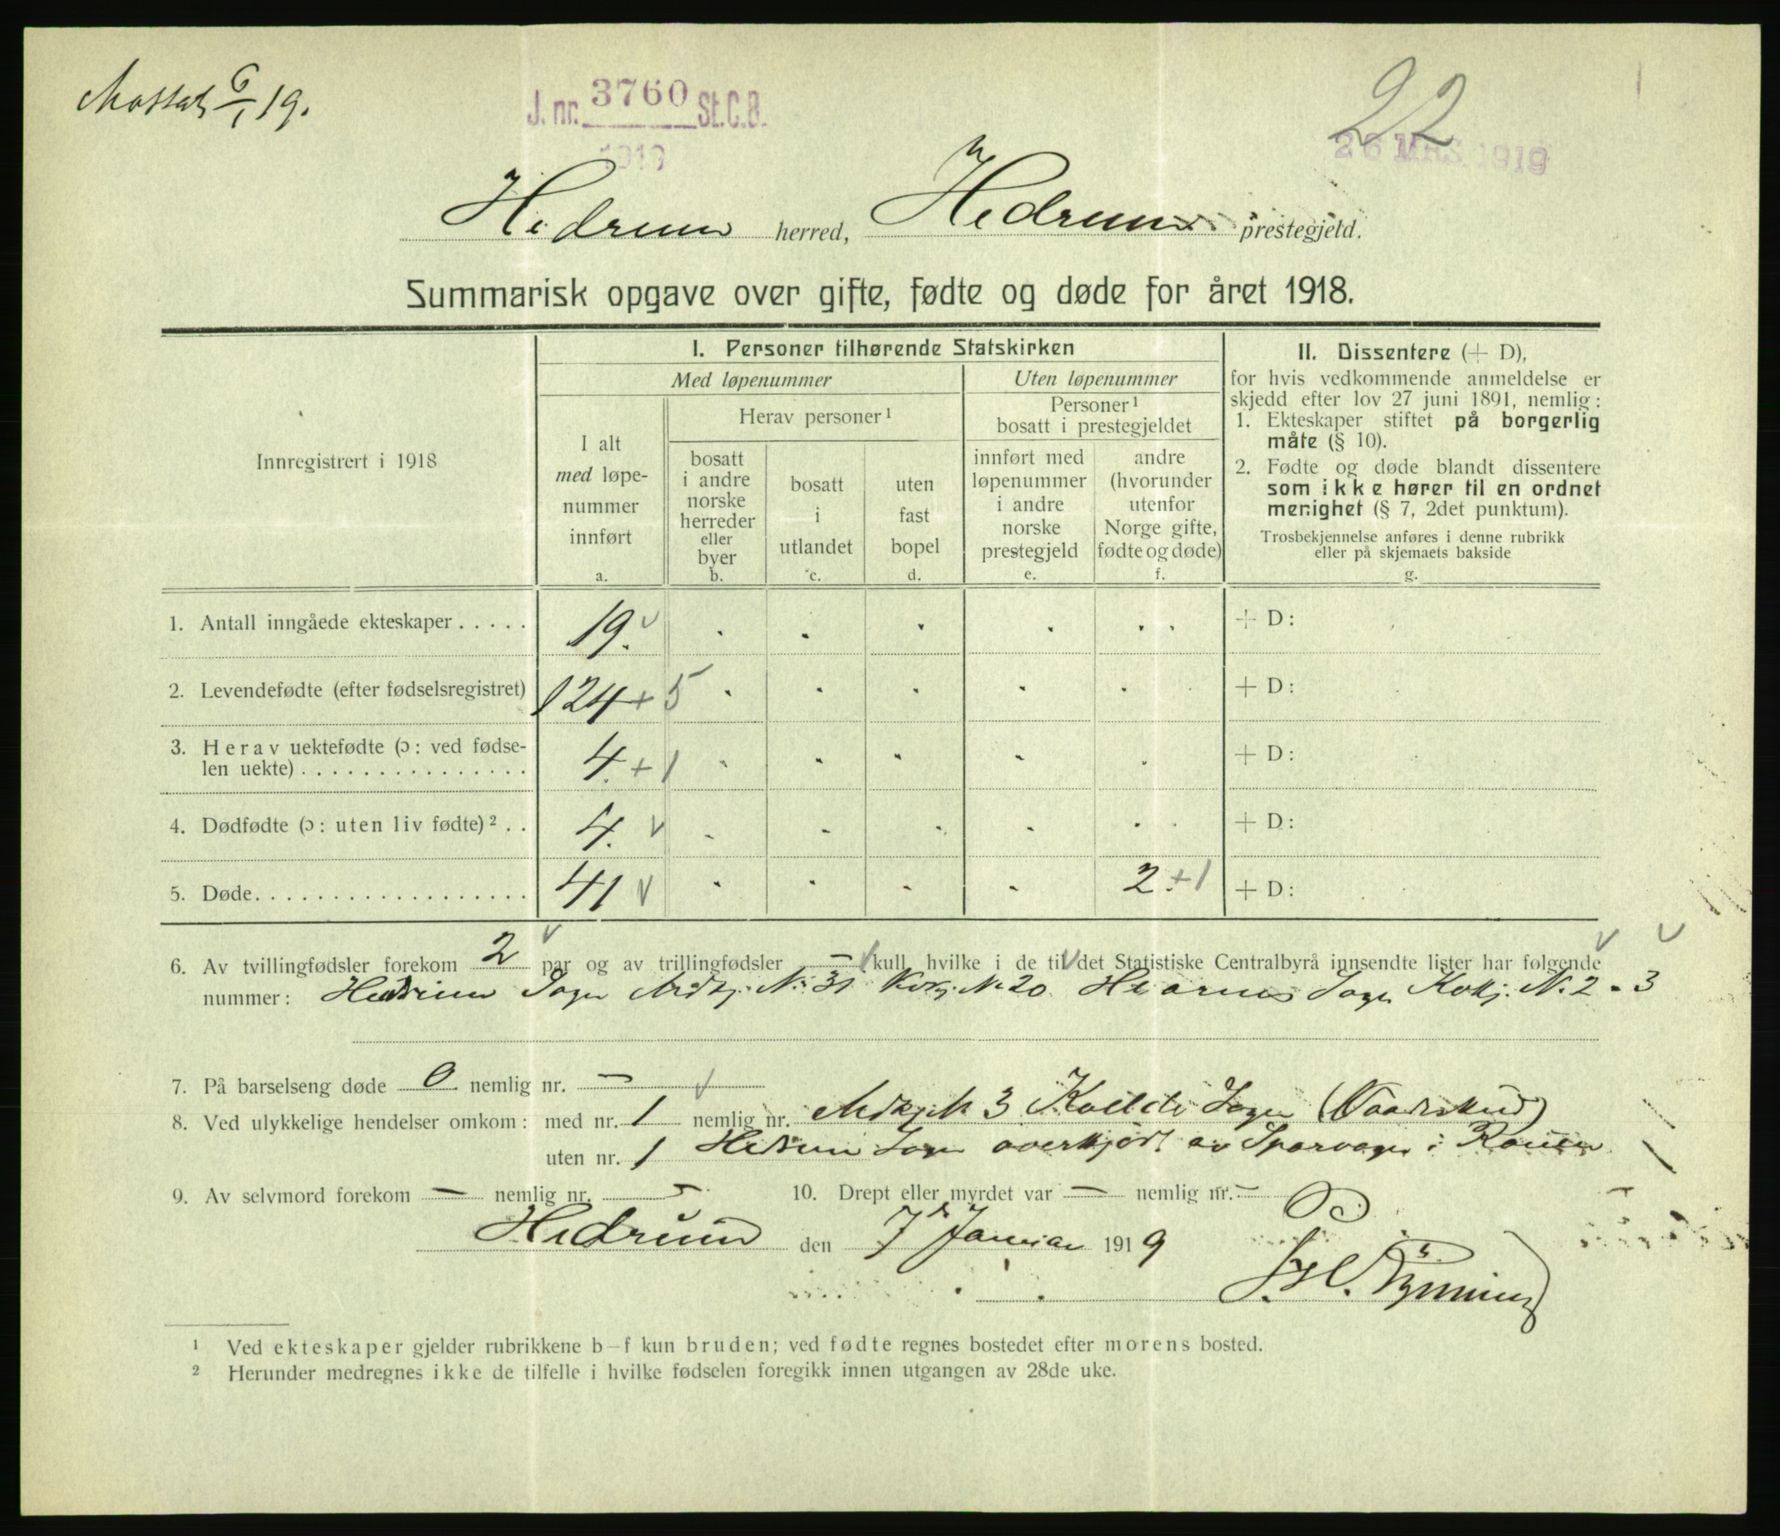 6/1 19.
J. nr. 3760 St.C.B.
1919
22
26 MRS 1919
Hedrum herred, Hedrum prestegjeld.
Summarisk opgave over gifte, fødte og døde for året 1918.
Innregistrert i 1918
I. Personer tilhørende Statskirken
Med løpenummer
Uten løpenummer
I alt
med løpe-
nummer
innført
a.
Herav personer¹
bosatt
i andre
norske
herreder
eller
byer
b.
bosatt
i
utlandet
c.
uten
fast
bopel
d.
Personer¹
bosatt i prestegjeldet
innført med
løpenummer
i andre
norske
prestegjeld
e.
andre
(hvorunder
utenfor
Norge gifte,
fødte og døde)
f.
II. Dissentere (+ D),
for hvis vedkommende anmeldelse er
skjedd efter lov 27 juni 1891, nemlig:
1. Ekteskaper stiftet på borgerlig
måte (§ 10).
2. Fødte og døde blandt dissentere
som ikke hører til en ordnet
menighet (§ 7, 2det punktum).
Trosbekjennelse anføres i denne rubrikk
eller på skjemaets bakside
g.
1. Antall inngåede ekteskaper ..... 19. + D:
2. Levendefødte (efter fødselsregistret) 124 + 5 + D:
3. Herav uektefødte (ɔ: ved fødse-
len uekte) ............... 4. + 1 + D:
4. Dødfødte (ɔ: uten liv fødte)² .. 4. + D:
5. Døde.................. 41 2. + 1 + D:
6. Av tvillingfødsler forekom 2 par og av trillingfødsler — kull, hvilke i de til det Statistiske Centralbyrå innsendte lister har følgende
nummer: Hedrum Sogn N. 31 N. 20 Sogn N. 2 - 3
7. På barselseng døde 0 nemlig nr. —
8. Ved ulykkelige hendelser omkom: med nr. 1 nemlig nr. 3 Sogn (Vaadeskud)
uten nr. 1 Hedrum Sogn overkjørt av Sporvogn i
9. Av selvmord forekom — nemlig nr. — 10. Drept eller myrdet var — nemlig nr. —
Hedrum den 7 Januar 1919
¹ Ved ekteskaper gjelder rubrikkene b—f kun bruden; ved fødte regnes bostedet efter morens bosted.
² Herunder medregnes ikke de tilfelle i hvilke fødselen foregikk innen utgangen av 28de uke.